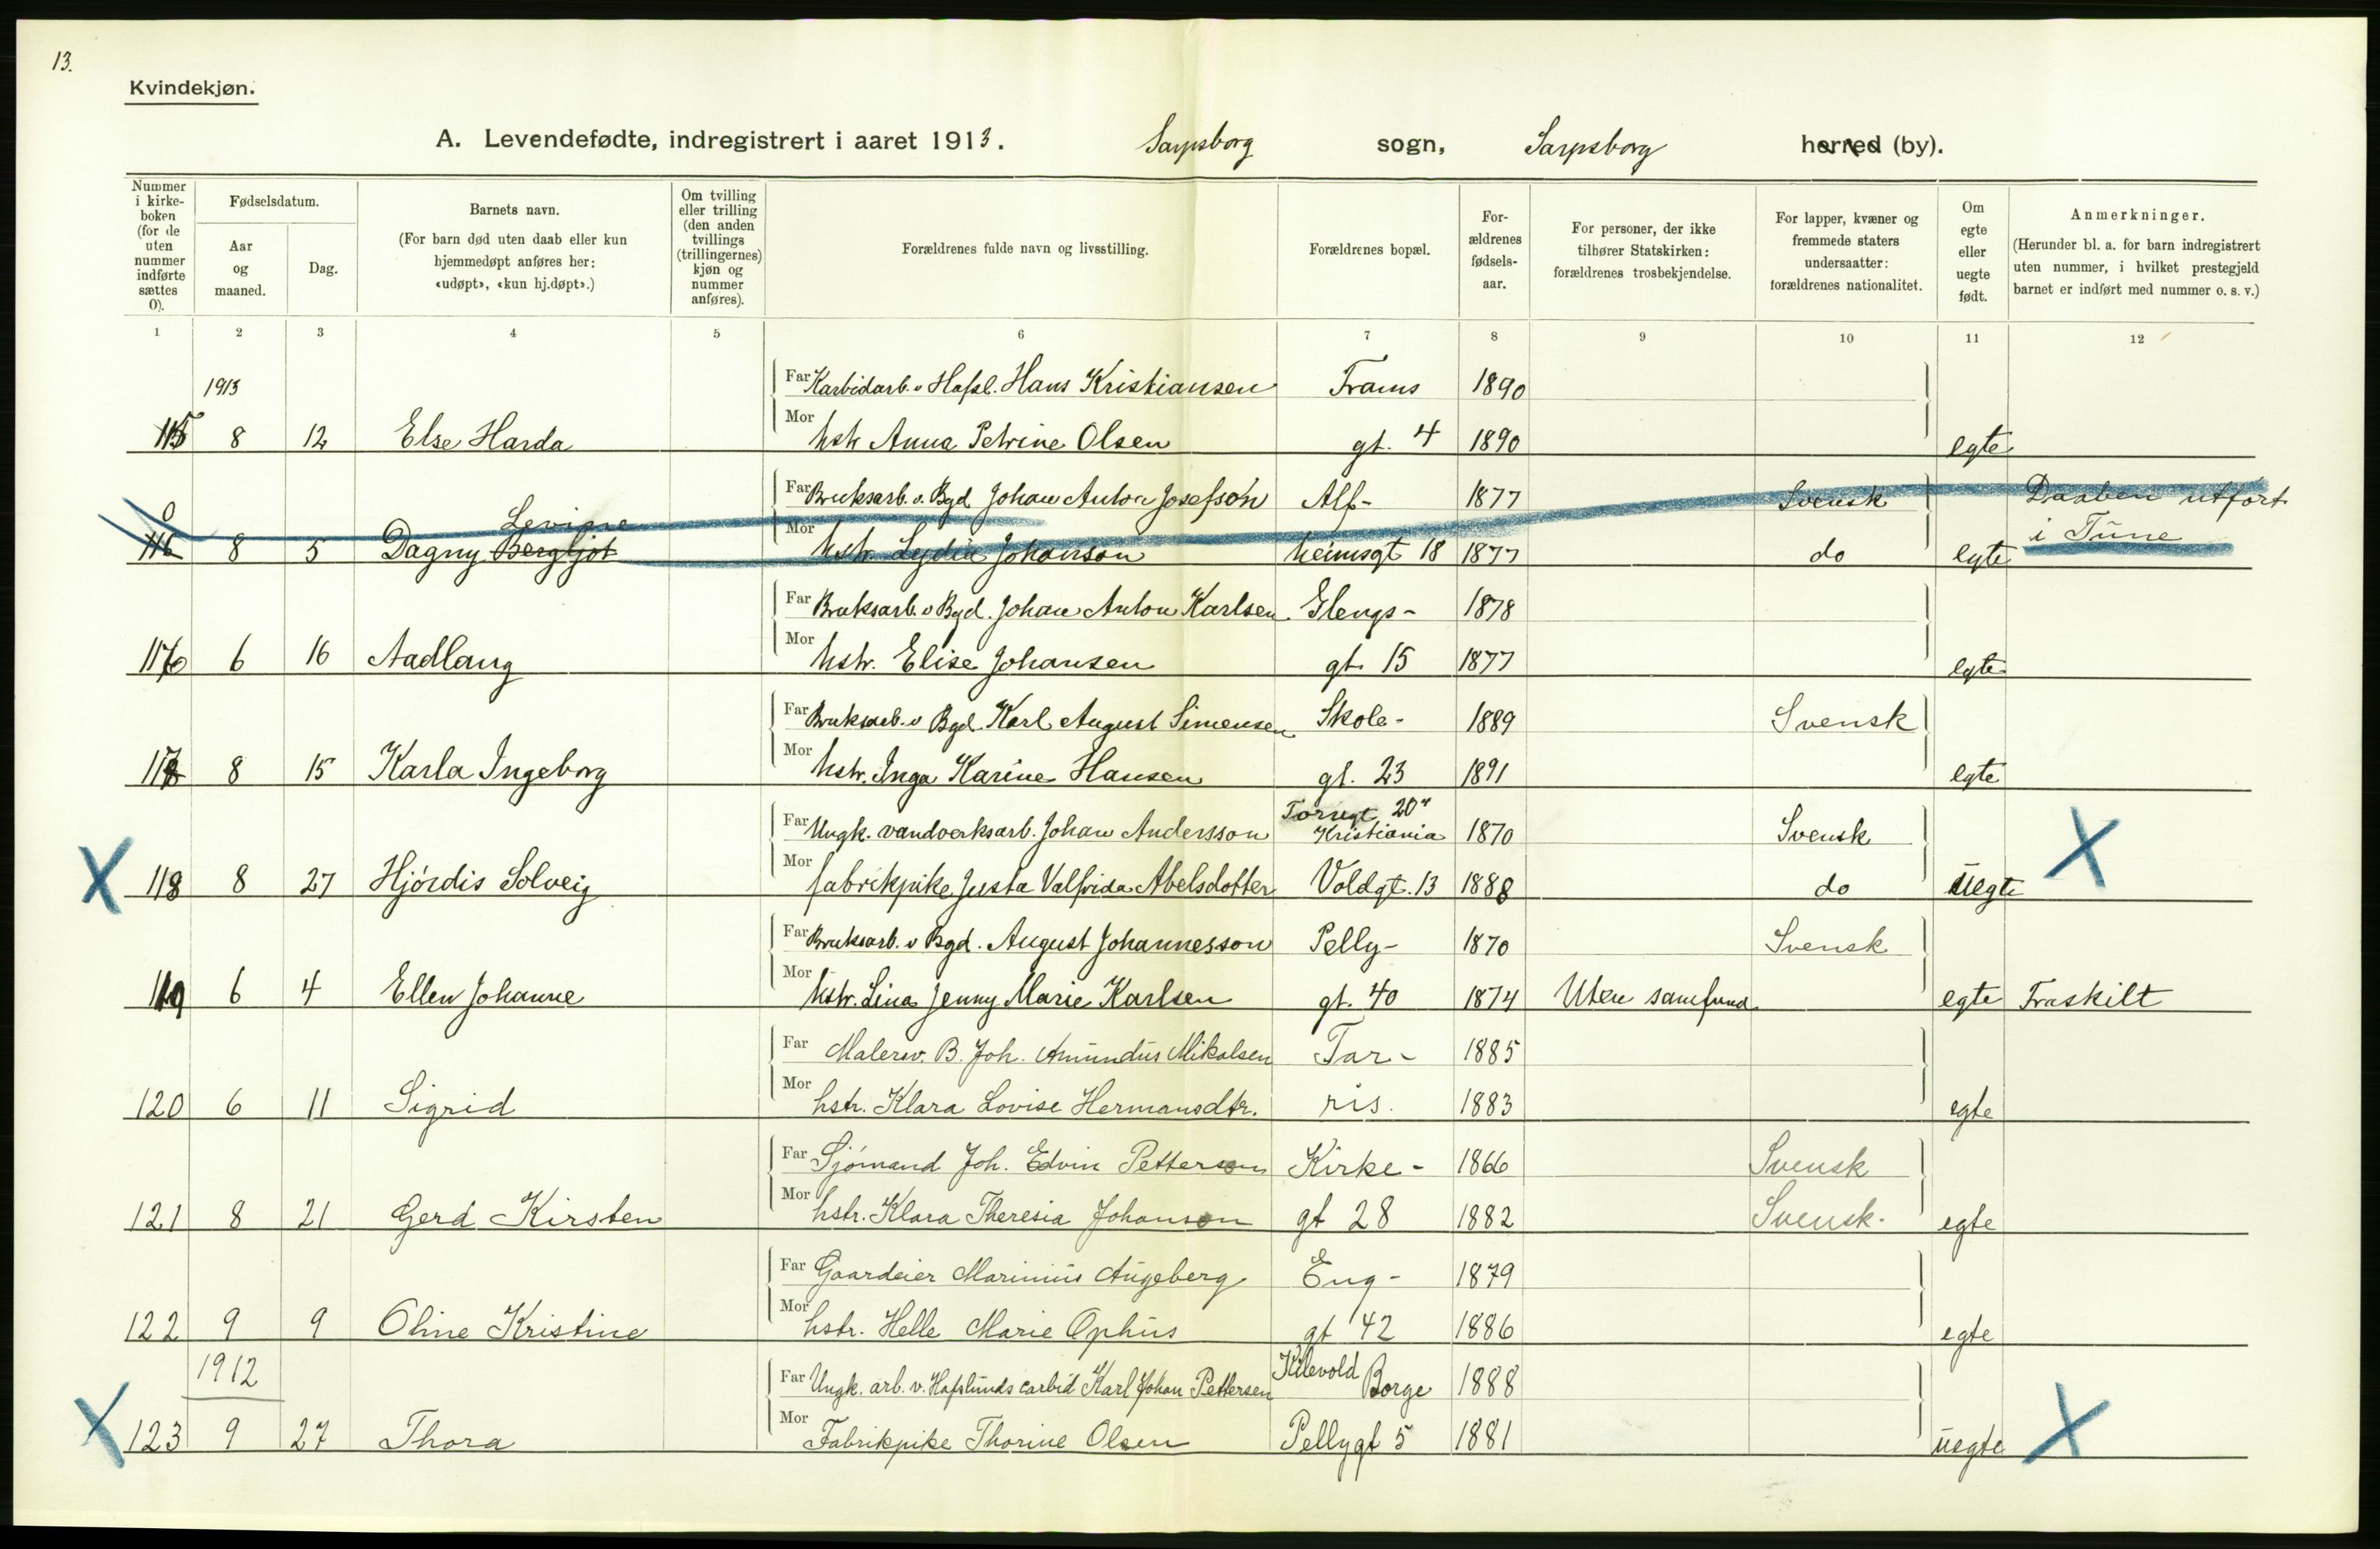 13.
Kvindekjøn.
A. Levendefødte, indregistrert i aaret 1913. Sarpsborg sogn, Sarpsborg herred (by).
Nummer i kirkeboken (for de uten nummer indførte sættes 0).
Fødselsdatum.
Aar og maaned.
Dag.
Barnets navn.
(For barn død uten daab eller kun hjemmedøpt anføres her: «udøpt», «kun hj.døpt».)
Om tvilling eller trilling (den anden tvillings (trillingernes) kjøn og nummer anføres).
Forældrenes fulde navn og livsstilling.
Forældrenes bopæl.
For-ældrenes fødsels-aar.
For personer, der ikke tilhører Statskirken: forældrenes trosbekjendelse.
For lapper, kvæner og fremmede staters undersaatter: forældrenes nationalitet.
Om egte eller uegte født.
Anmerkninger.
(Herunder bl. a. for barn indregistrert uten nummer, i hvilket prestegjeld barnet er indført med nummer o. s. v.)
1 2 3 4 5 6 7 8 9 10 11 12
1913 Far Karbidarb. v Hafsl. Hans Kristiansen Frams 1890
115 8 12 Else Harda Mor hstr Anna Petrine Olsen gt. 4 1890 egte
Far Bruksarb. v. Bgd Johan Anton Josefson Alf- 1877 Svensk Daaben utført
0 Levine
116 8 5 Dagny Bergljot Mor hstr. Lydia Johanson heimsgt 18 1877 do egte i Tune
Far Bruksarb. v Bgd. Johan Anton Karlsen Glengs- 1878
116 6 16 Aadlaug Mor hstr. Elise Johansen gt. 15 1877 egte
Far Bruksarb. v Bgd Karl August Simensen Skole- 1889 Svensk
117 8 15 Karla Ingeborg Mor hstr. Inga Karine Hansen gt. 23 1891 egte
Far Ungk. vandverksarb. Johan Andersson Torvgt 20 Kristiania 1870 Svensk
X 118 8 27 Hjördis Solveig Mor fabrikpike Justa Valfrida Abelsdotter Voldgt. 13 1888 do uegte X
Far Bruksarb. v Bgd. August Johannesson Pelly- 1870 Svensk
119 6 4 Ellen Johanne Mor hstr. Lina Jenny Marie Karlsen gt. 40 1874 Uten samfund egte Fraskilt
Far Malersv. B. Joh. Amundus Mikalsen Tar- 1885
120 6 11 Sigrid Mor hstr. Klara Lovise Hermansdtr. ris. 1883 egte
Far Sjömand Joh. Edvin Petterson Kirke- 1866 Svensk
121 8 21 Gerd Kirsten Mor hstr. Klara Theresia Johanson gt 28 1882 Svensk. egte
Far Gaardeier Marinius Augeberg Eng- 1879
122 9 9 Oline Kristine Mor hstr. Helle Marie Ophus gt 42 1886 egte
1912 Far Ungk. arb. v. Hafslunds carbid Karl Johan Pettersen Kilevold Borge 1888
X 123 9 27 Thora Mor Fabrikpike Thorine Olsen Pellygt 5 1881 uegte X